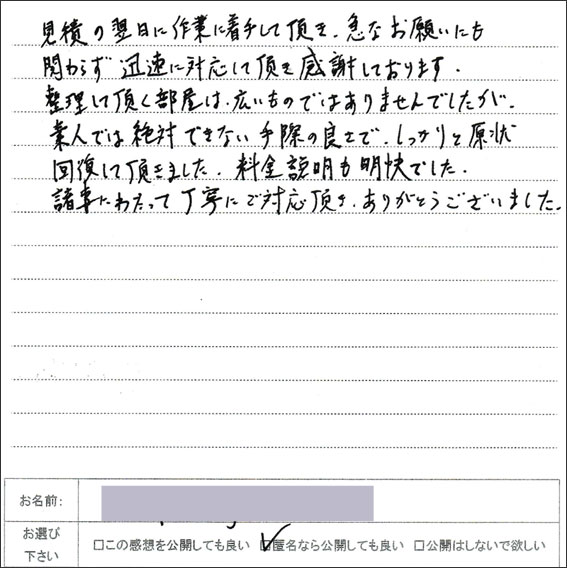 見積の翌日に作業に着手して頂き、急なお願いにも
関わらず迅速に対応して頂き感謝しております。
整理して頂く部屋は、広いものではありませんでしたが、
素人では絶対できない手際の良さで、しっかりと原状
回復して頂きました。料金説明も明快でした。
諸事にわたって丁寧にご対応頂き、ありがとうございました。
お名前:
お選び
下さい
□この感想を公開しても良い ☑匿名なら公開しても良い □公開はしないで欲しい